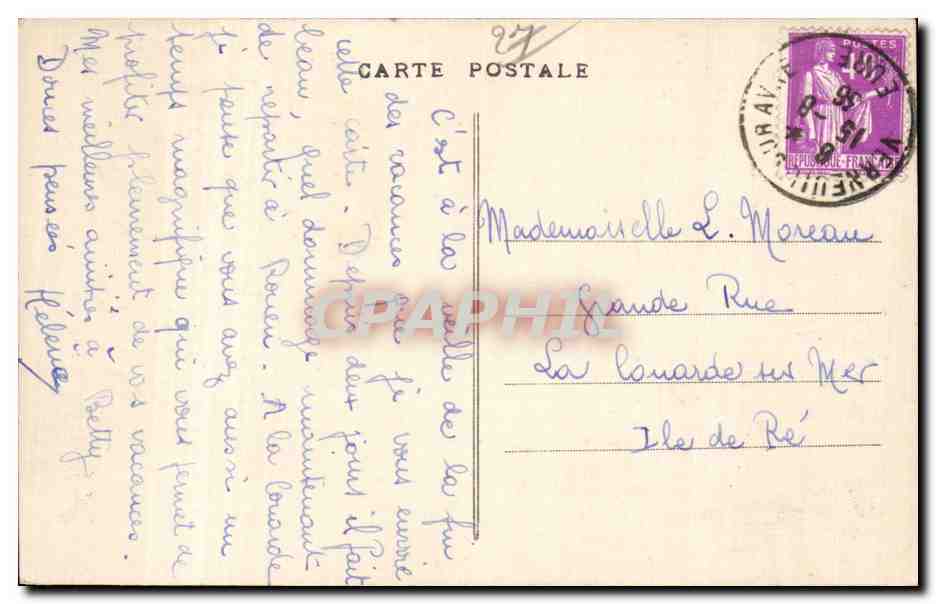 27
CARTE POSTALE
C'est à la veille de la fin
des vacances que je vous envoie
cette carte. Depuis deux jours il fait
beau, quel dommage maintenant
de repartir à Rouen. A la Couarde
je pense que vous avez aussi un
temps magnifique qui vous permet de
profiter pleinement de vos vacances.
Mes meilleures amitiés à Betty.
Douces pensées Hélène
Mademoiselle L. Moreau
Grande Rue
La Couarde sur Mer
Ile de Ré
POSTES
REPUBLIQUE FRANCAISE
VERNEUIL SUR AVRE
EURE
15
8
36
CPAPHIL